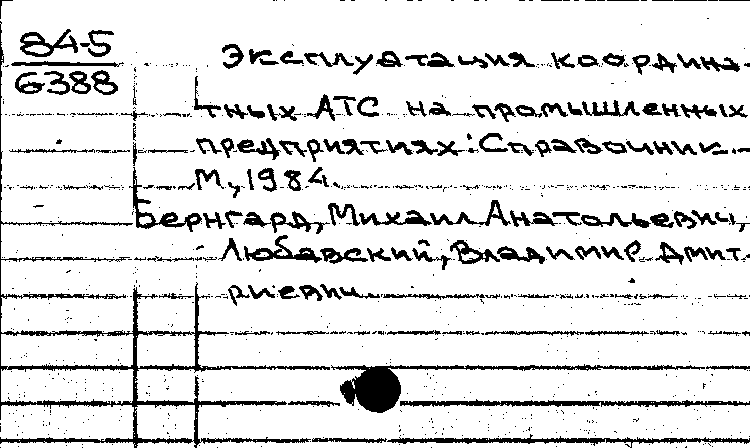 84-5
6388
Эксплуатация координа-
тных АТС на промышленных
предприятиях: Справочник.-
М., 1984.
Бернгард, Михаил Анатольевич,
Любавский, Владимир Дмит-
риевич